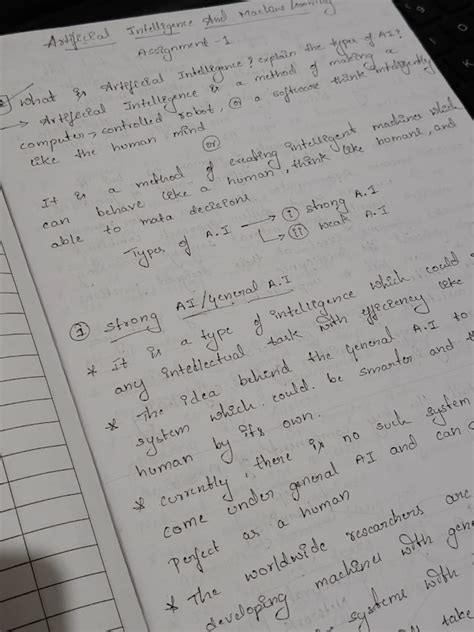 Artificial Intelligence And Machine Learning
Assignment - 1
what is Artificial Intelligence? explain the types of AI?
→ Artificial Intelligence is a method of making a
computer, controlled robot, or a software think intelligently
like the human mind
(or)
It is a method of creating intelligent machines which
can behave like a human, think like humans, and
able to mata decisions
Types of A.I → (i) strong A.I
↳ (ii) weak A.I
(1) strong AI/General A.I
* it is a type of intelligence which could
any intellectual task with efficiency like
* The idea behind the general A.I to
system which could be smarter and
human by its own.
* currently there is no such system
come under general AI and can
perfect as a human
* The worldwide researchers are
developing machines with
systems with
take